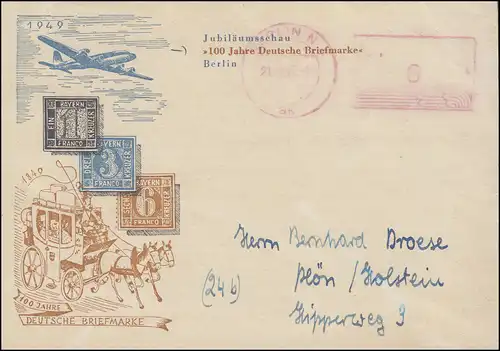 1949
Jubiläumsschau
»100 Jahre Deutsche Briefmarke«
Berlin
BAYERN
EIN
1
KREUZER
FRANCO
BAYERN
DREI
3
KREUZER
FRANCO
BAYERN
6
KREUZER
FRANCO
1849
100 JAHRE
DEUTSCHE BRIEFMARKE
Herrn Bernhard Droese
(24b) Plön/Holstein
Hipperweg 3